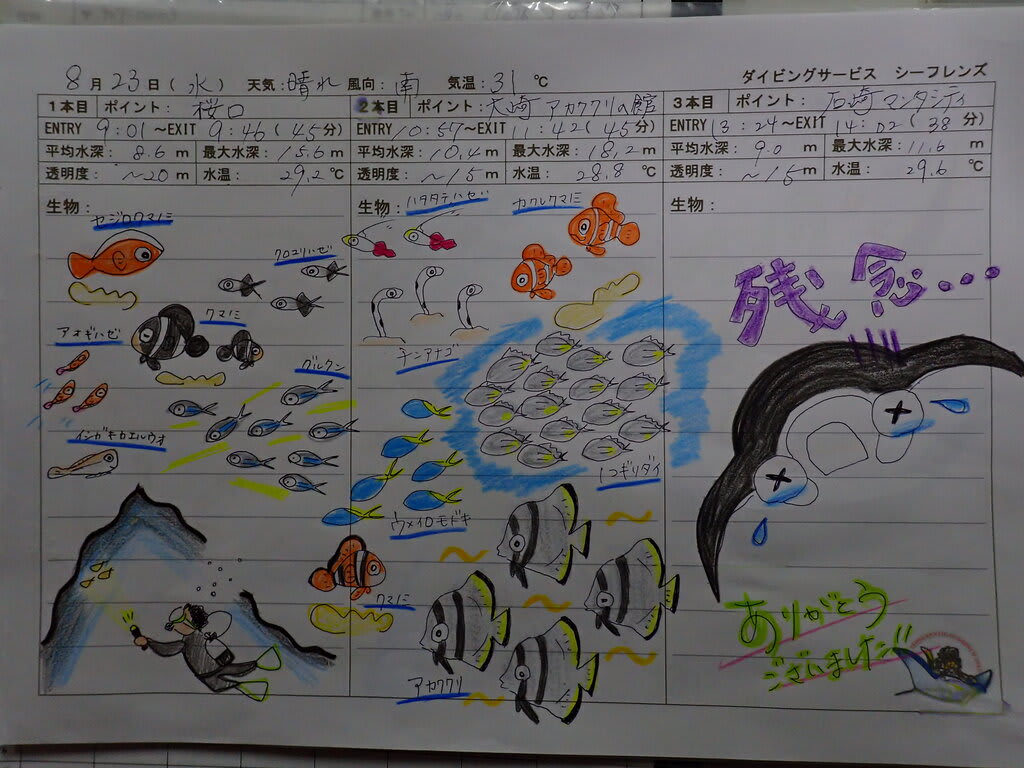 8月23日(水) 天気:晴れ 風向:南 気温:31℃
ダイビングサービス シーフレンズ
1本目 ポイント: 桜口
ENTRY 9:01~EXIT 9:46(45分)
平均水深: 8.6m 最大水深: 15.6m
透明度: ~20m 水温: 29.2℃
生物:
セジロクマノミ
クロユリハゼ
クマノミ
アオギハゼ
グルクン
イシガキカエルウオ
2本目 ポイント: 大崎 アカククリの館
ENTRY 10:57~EXIT 11:42(45分)
平均水深: 10.4m 最大水深: 18.2m
透明度: ~15m 水温: 28.8℃
生物:
ハタタテハゼ
カクレクマノミ
チンアナゴ
ノコギリダイ
ウメイロモドキ
クマノミ
アカククリ
3本目 ポイント: 石崎 マンタシティ
ENTRY 13:24~EXIT 14:02(38分)
平均水深: 9.0m 最大水深: 11.6m
透明度: ~15m 水温: 29.6℃
生物:
残念...
ありがとう
ございました!!